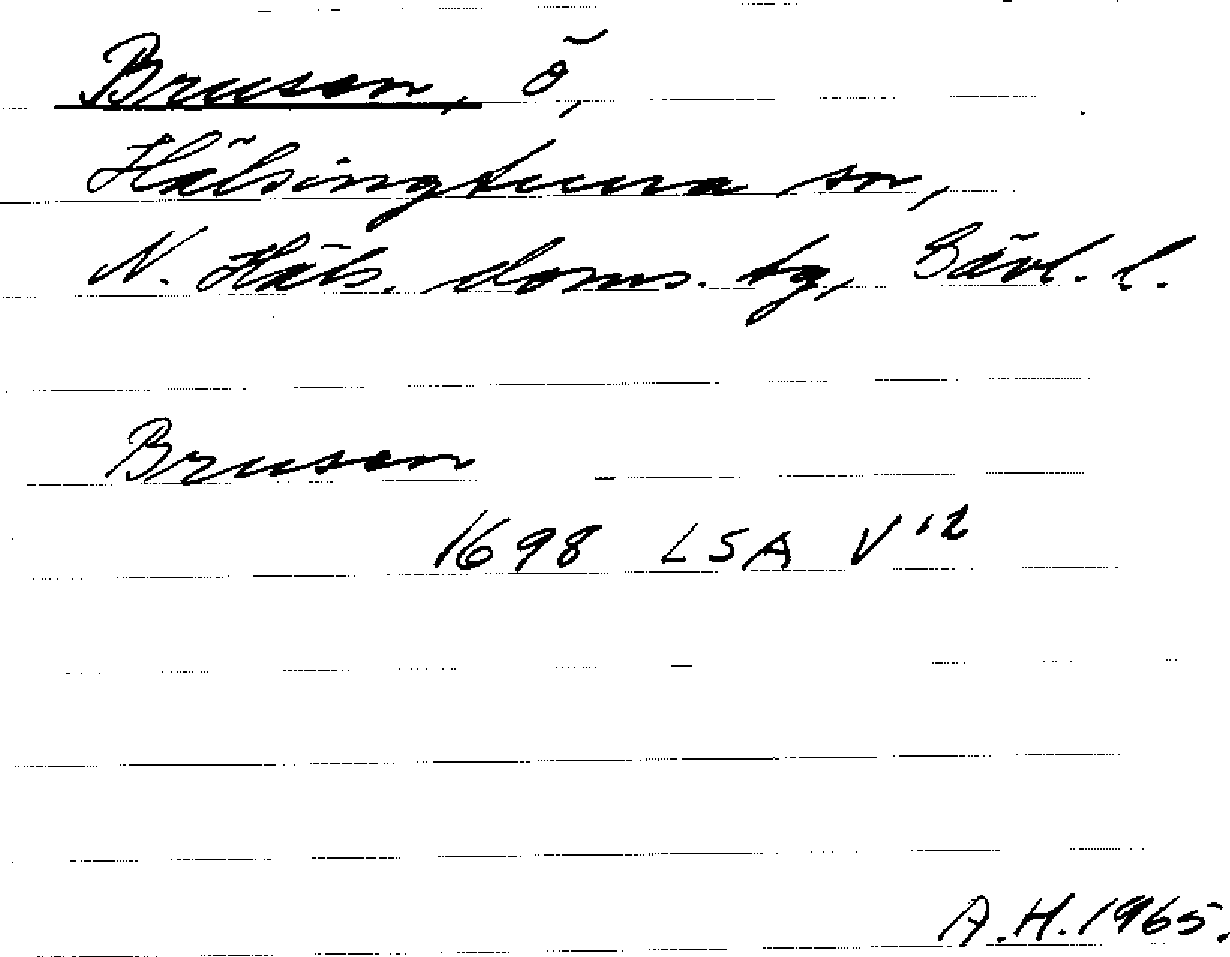 Brusen, ö,
Hälsingtuna sn,
N. Häls. doms. tg, Gävl. l.
Brusen
1698 LSA V 12
A.H. 1965.